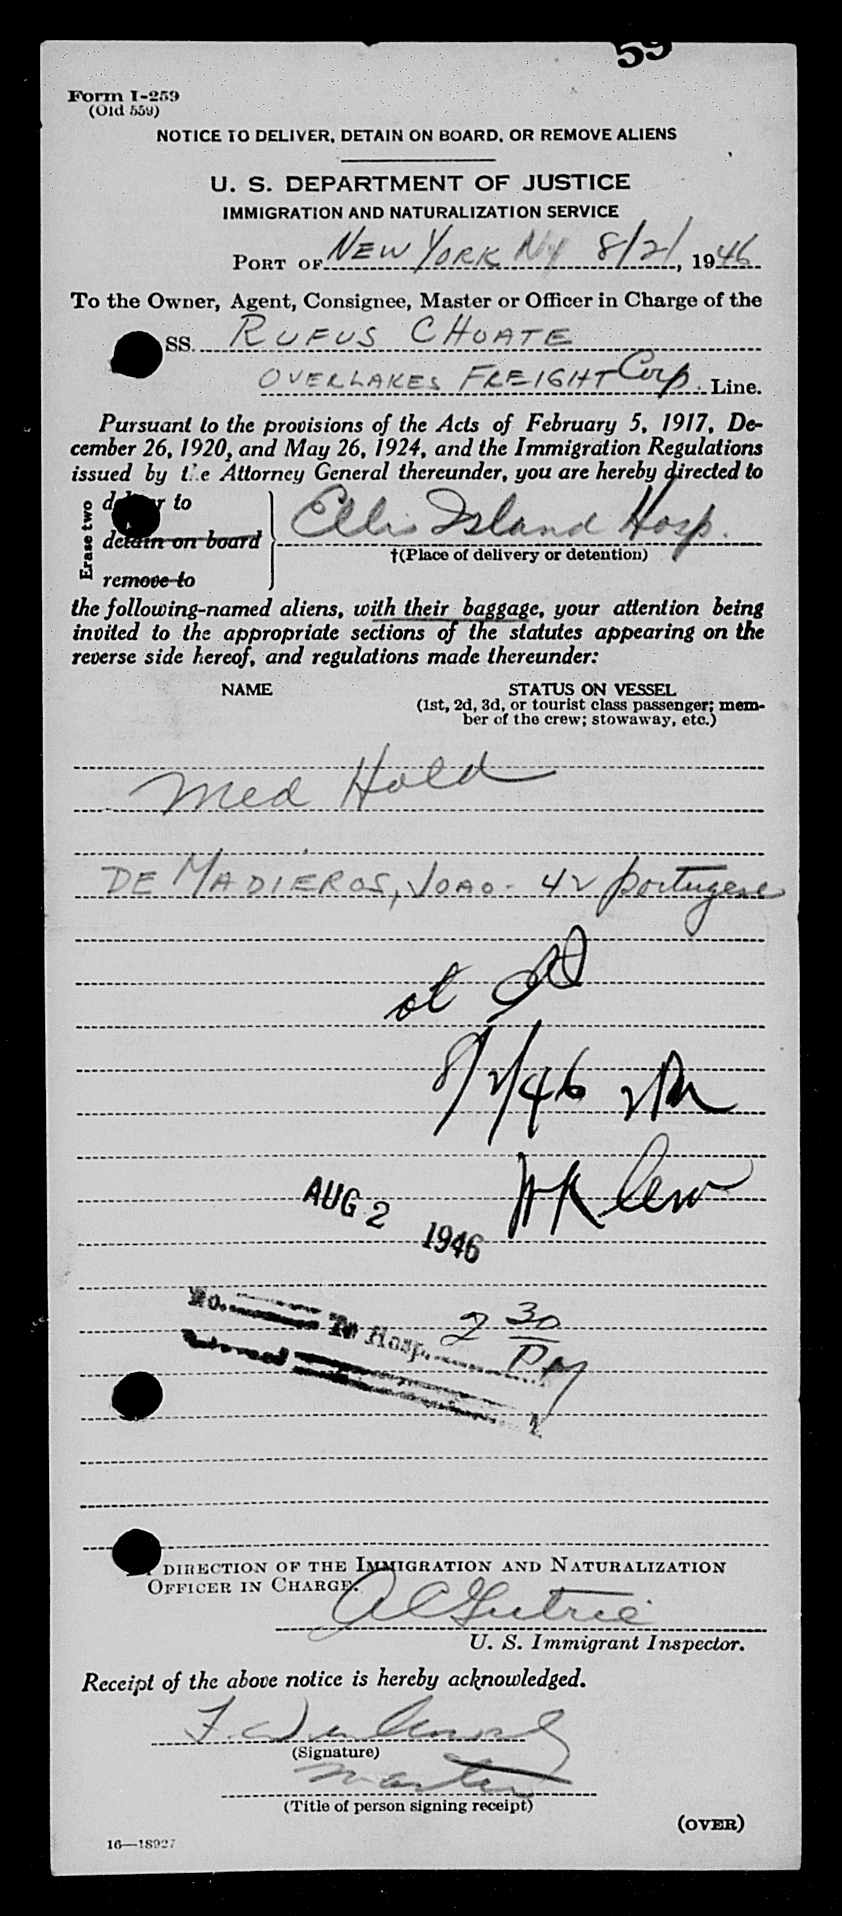 59
Form I-259
(Old 559)
NOTICE TO DELIVER, DETAIN ON BOARD, OR REMOVE ALIENS
U. S. DEPARTMENT OF JUSTICE
IMMIGRATION AND NATURALIZATION SERVICE
PORT OF NEW YORK NY 8/2/, 1946
To the Owner, Agent, Consignee, Master or Officer in Charge of the
SS. RUFUS CHOATE
OVERLAKES FREIGHT Corp. Line.
Pursuant to the provisions of the Acts of February 5, 1917, De-
cember 26, 1920, and May 26, 1924, and the Immigration Regulations
issued by the Attorney General thereunder, you are hereby directed to
Erase two
deliver to
detain on board
remove to
Ellis Island Hosp.
†(Place of delivery or detention)
the following-named aliens, with their baggage, your attention being
invited to the appropriate sections of the statutes appearing on the
reverse side hereof, and regulations made thereunder:
NAME STATUS ON VESSEL
(1st, 2d, 3d, or tourist class passenger; mem-
ber of the crew; stowaway, etc.)
Med Hold
DE MADIEROS, JOAO - 42 portugese
8/2/46 2PM
AUG 2 1946
No. To Hosp. 2 30 PM
Returned
DIRECTION OF THE IMMIGRATION AND NATURALIZATION
OFFICER IN CHARGE.
U. S. Immigrant Inspector.
Receipt of the above notice is hereby acknowledged.
(Signature)
Master
(Title of person signing receipt)
(OVER)
16—18927